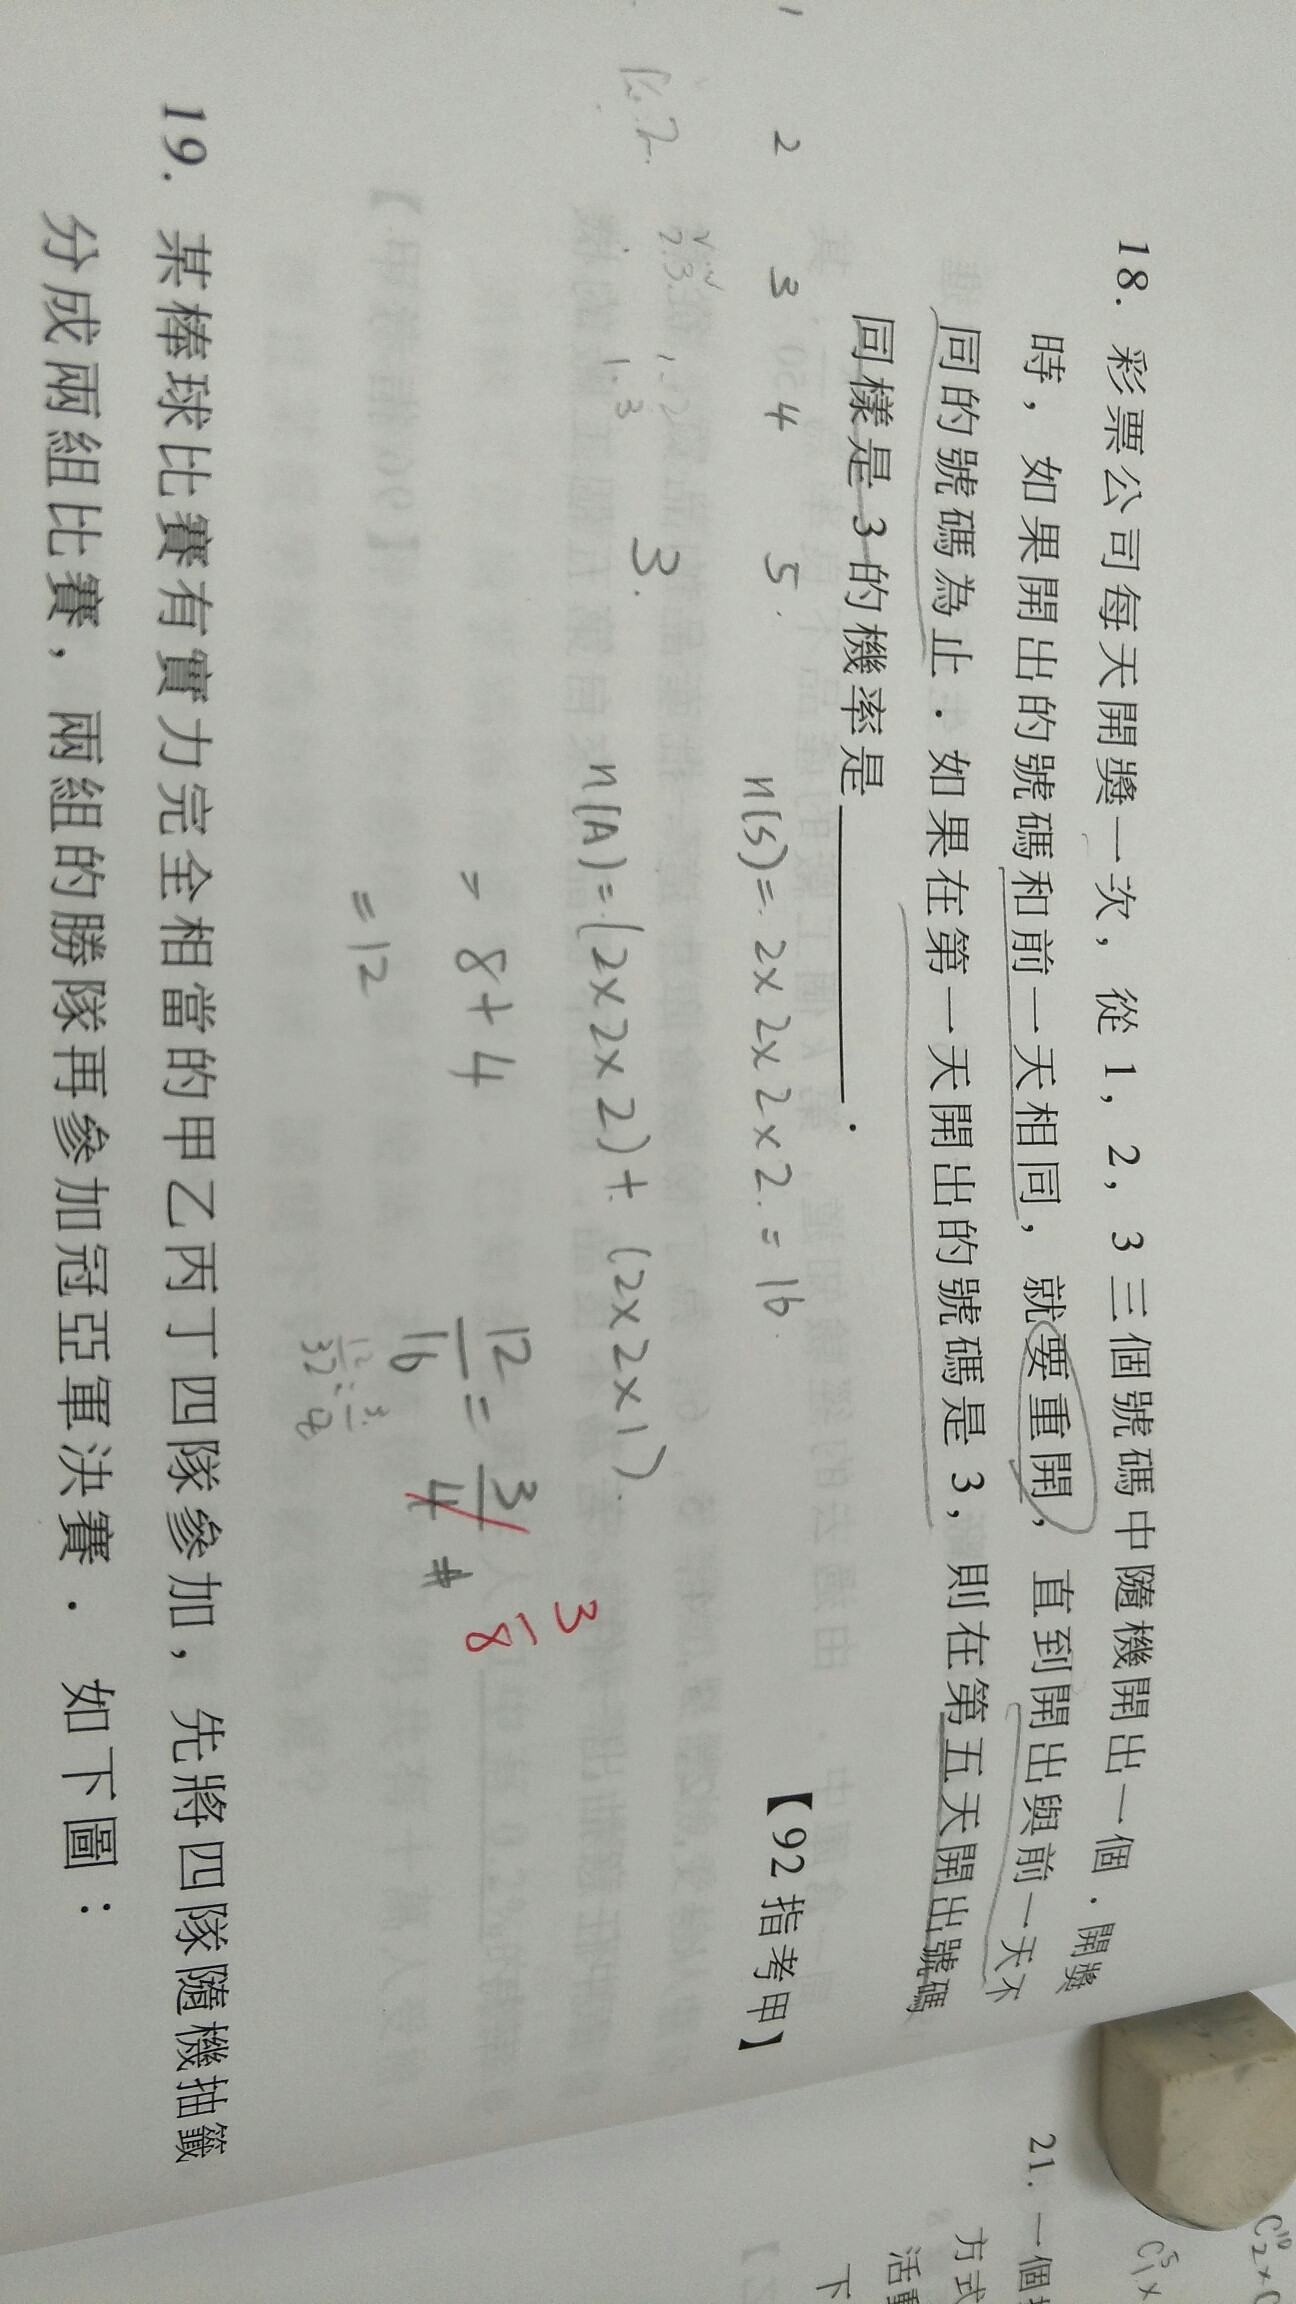 18. 彩票公司每天開獎一次，從 1，2，3 三個號碼中隨機開出一個．開獎
時，如果開出的號碼和前一天相同，就要重開，直到開出與前一天不
同的號碼為止．如果在第一天開出的號碼是 3，則在第五天開出號碼
同樣是 3 的機率是________．
【92 指考甲】
1 2 3 4 5
n(S)= 2×2×2×2 = 16
1.2
1.3
3.
n(A)=(2×2×2)+(2×2×1)
= 8+4
= 12
12/16 = 3/4 #
3/8
12/32 = 3/8
19. 某棒球比賽有實力完全相當的甲乙丙丁四隊參加，先將四隊隨機抽籤
分成兩組比賽，兩組的勝隊再參加冠亞軍決賽．如下圖：
21. 一個
方式
活動
下